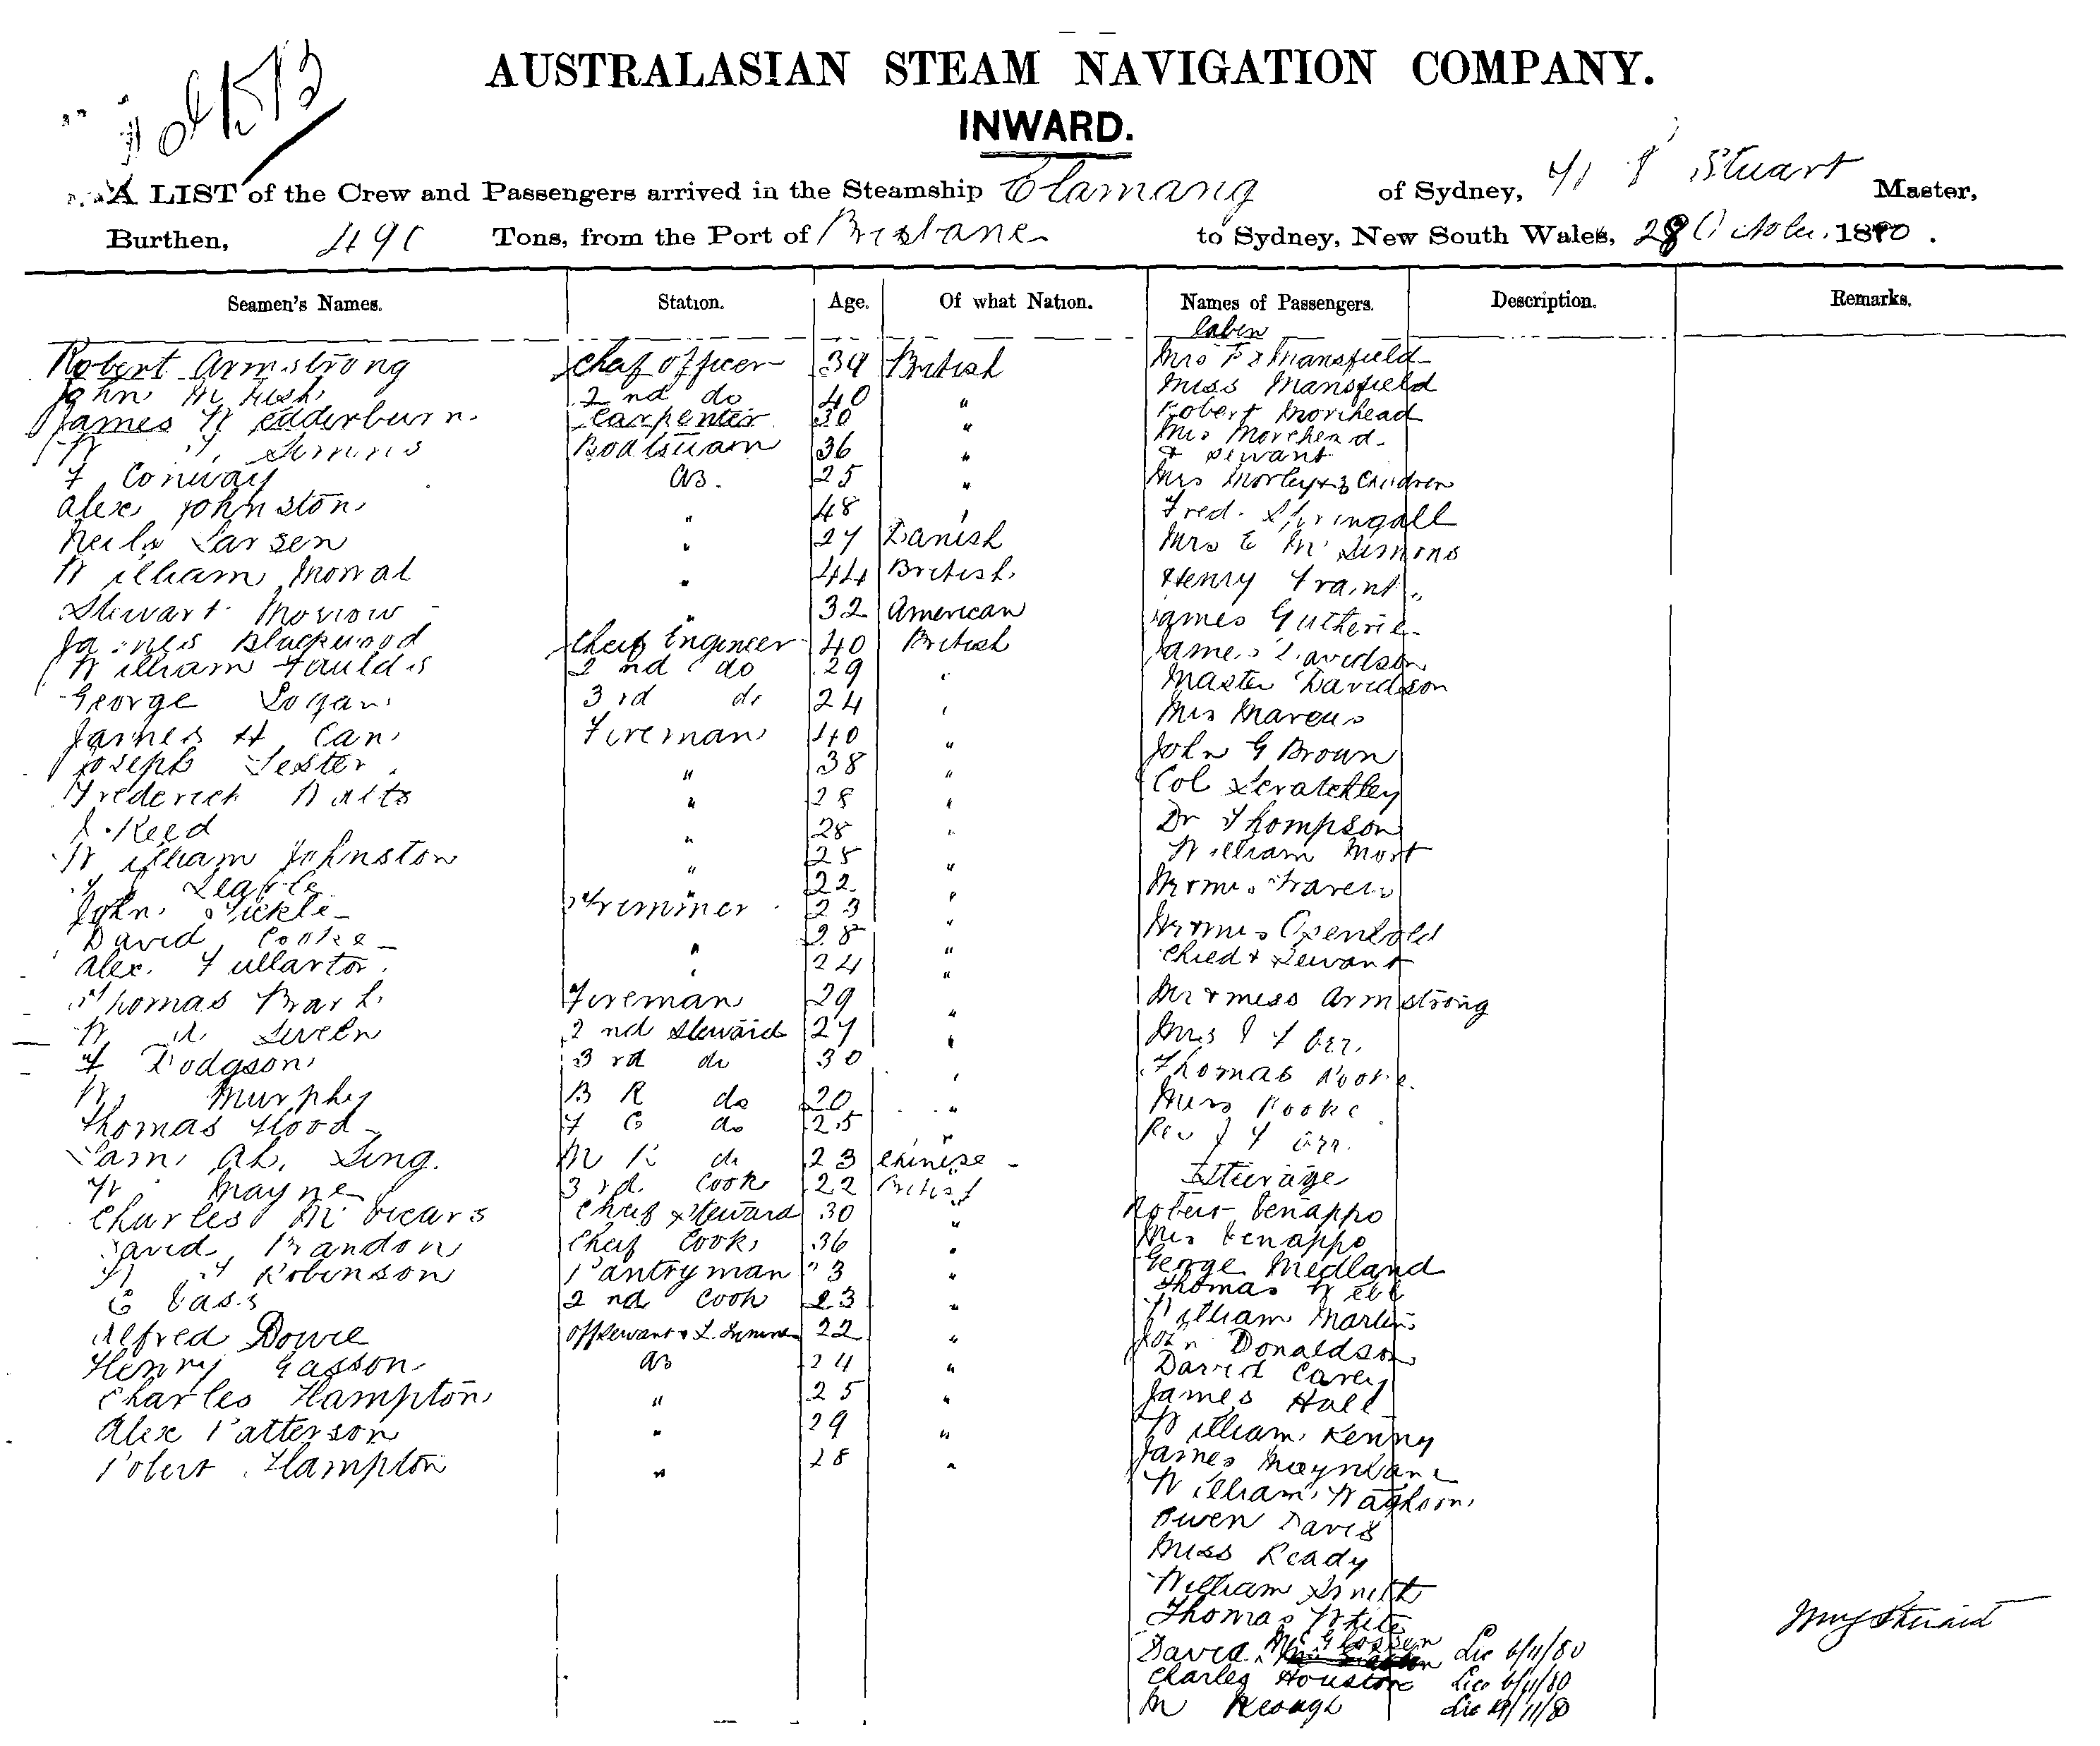 AUSTRALASIAN STEAM NAVIGATION COMPANY.
INWARD.
A LIST of the Crew and Passengers arrived in the Steamship Elamang of Sydney, Stuart Master,
Burthen, Tons, from the Port of Brisbane to Sydney, New South Wales, 28 October 1880.
Seamen's Names. Station. Age. Of what Nation. Names of Passengers. Description. Remarks.
Cabin
Robert Armstrong Cheif Officer 34 British Mrs Mansfield
John 2nd do 40 " Miss Mansfield
James Wedderburn Carpenter 30 " Robert Morehead
Simms Boatswain 36 " Mrs Morehead
& Servant
F Conway AB. 25 " Mrs Morley & 3 Children
Alex Johnston " 48 " Fred. Springall
Neils Larsen " 27 Danish Mrs E Mc Simons
William Mowat " 44 British Henry Trant
Stewart Morrow " 32 American James Gutherie
James Blackwood Cheif Engineer 40 British James Davidson
William Faulds 2nd do 29 " Master Davidson
George Logan 3rd do 24 " Mrs Marcus
James H Can Fireman 40 " John G Brown
Joseph Lester " 38 " Col Scratchley
Frederick Watts " 28 " Dr Thompson
Reed " 28 "
William Johnston " 25 " William Mort
" 22 " Mr & Mrs Travers
John Sickle Trimmer 23 " Mr & Mrs
David Cooke " 28 " Child & Servant
Alex. Fullarton " 24 "
Thomas Fireman 29 " Mr & Miss Armstrong
W 2nd Steward 27 " Mrs J F Orr.
F Dodgson 3rd do 30 Thomas Rooke
W. Murphy B R do 20 " Miss Rooke
Thomas Flood F C do 25 " Rev J F Orr.
Sam Ah. Ling. do 23 Chinese Steerage
W Mayne 3rd Cook 22 British
Charles McVicars Cheif Steward 30 " Robert Venappo
David Brandon Cheif Cook 36 " Mrs Venappo
Robinson Pantryman 23 " George Medland
C Cass 2nd Cook 23 " Thomas Webb
William Martin
Alfred Dowie Off Servant & 22 " John Donaldson
Henry Gasson AB 24 " David Carey
Charles Hampton " 25 " James Hall
Alex Patterson " 29 " William Kenny
Robert Hampton " 28 " James
William Waghorn
Owen Davis
Miss Ready
William Smith
Thomas White
David Mc Glossen Lic 6/11/80
Charles Houston Lic 6/11/80
M Keough Lic /11/80